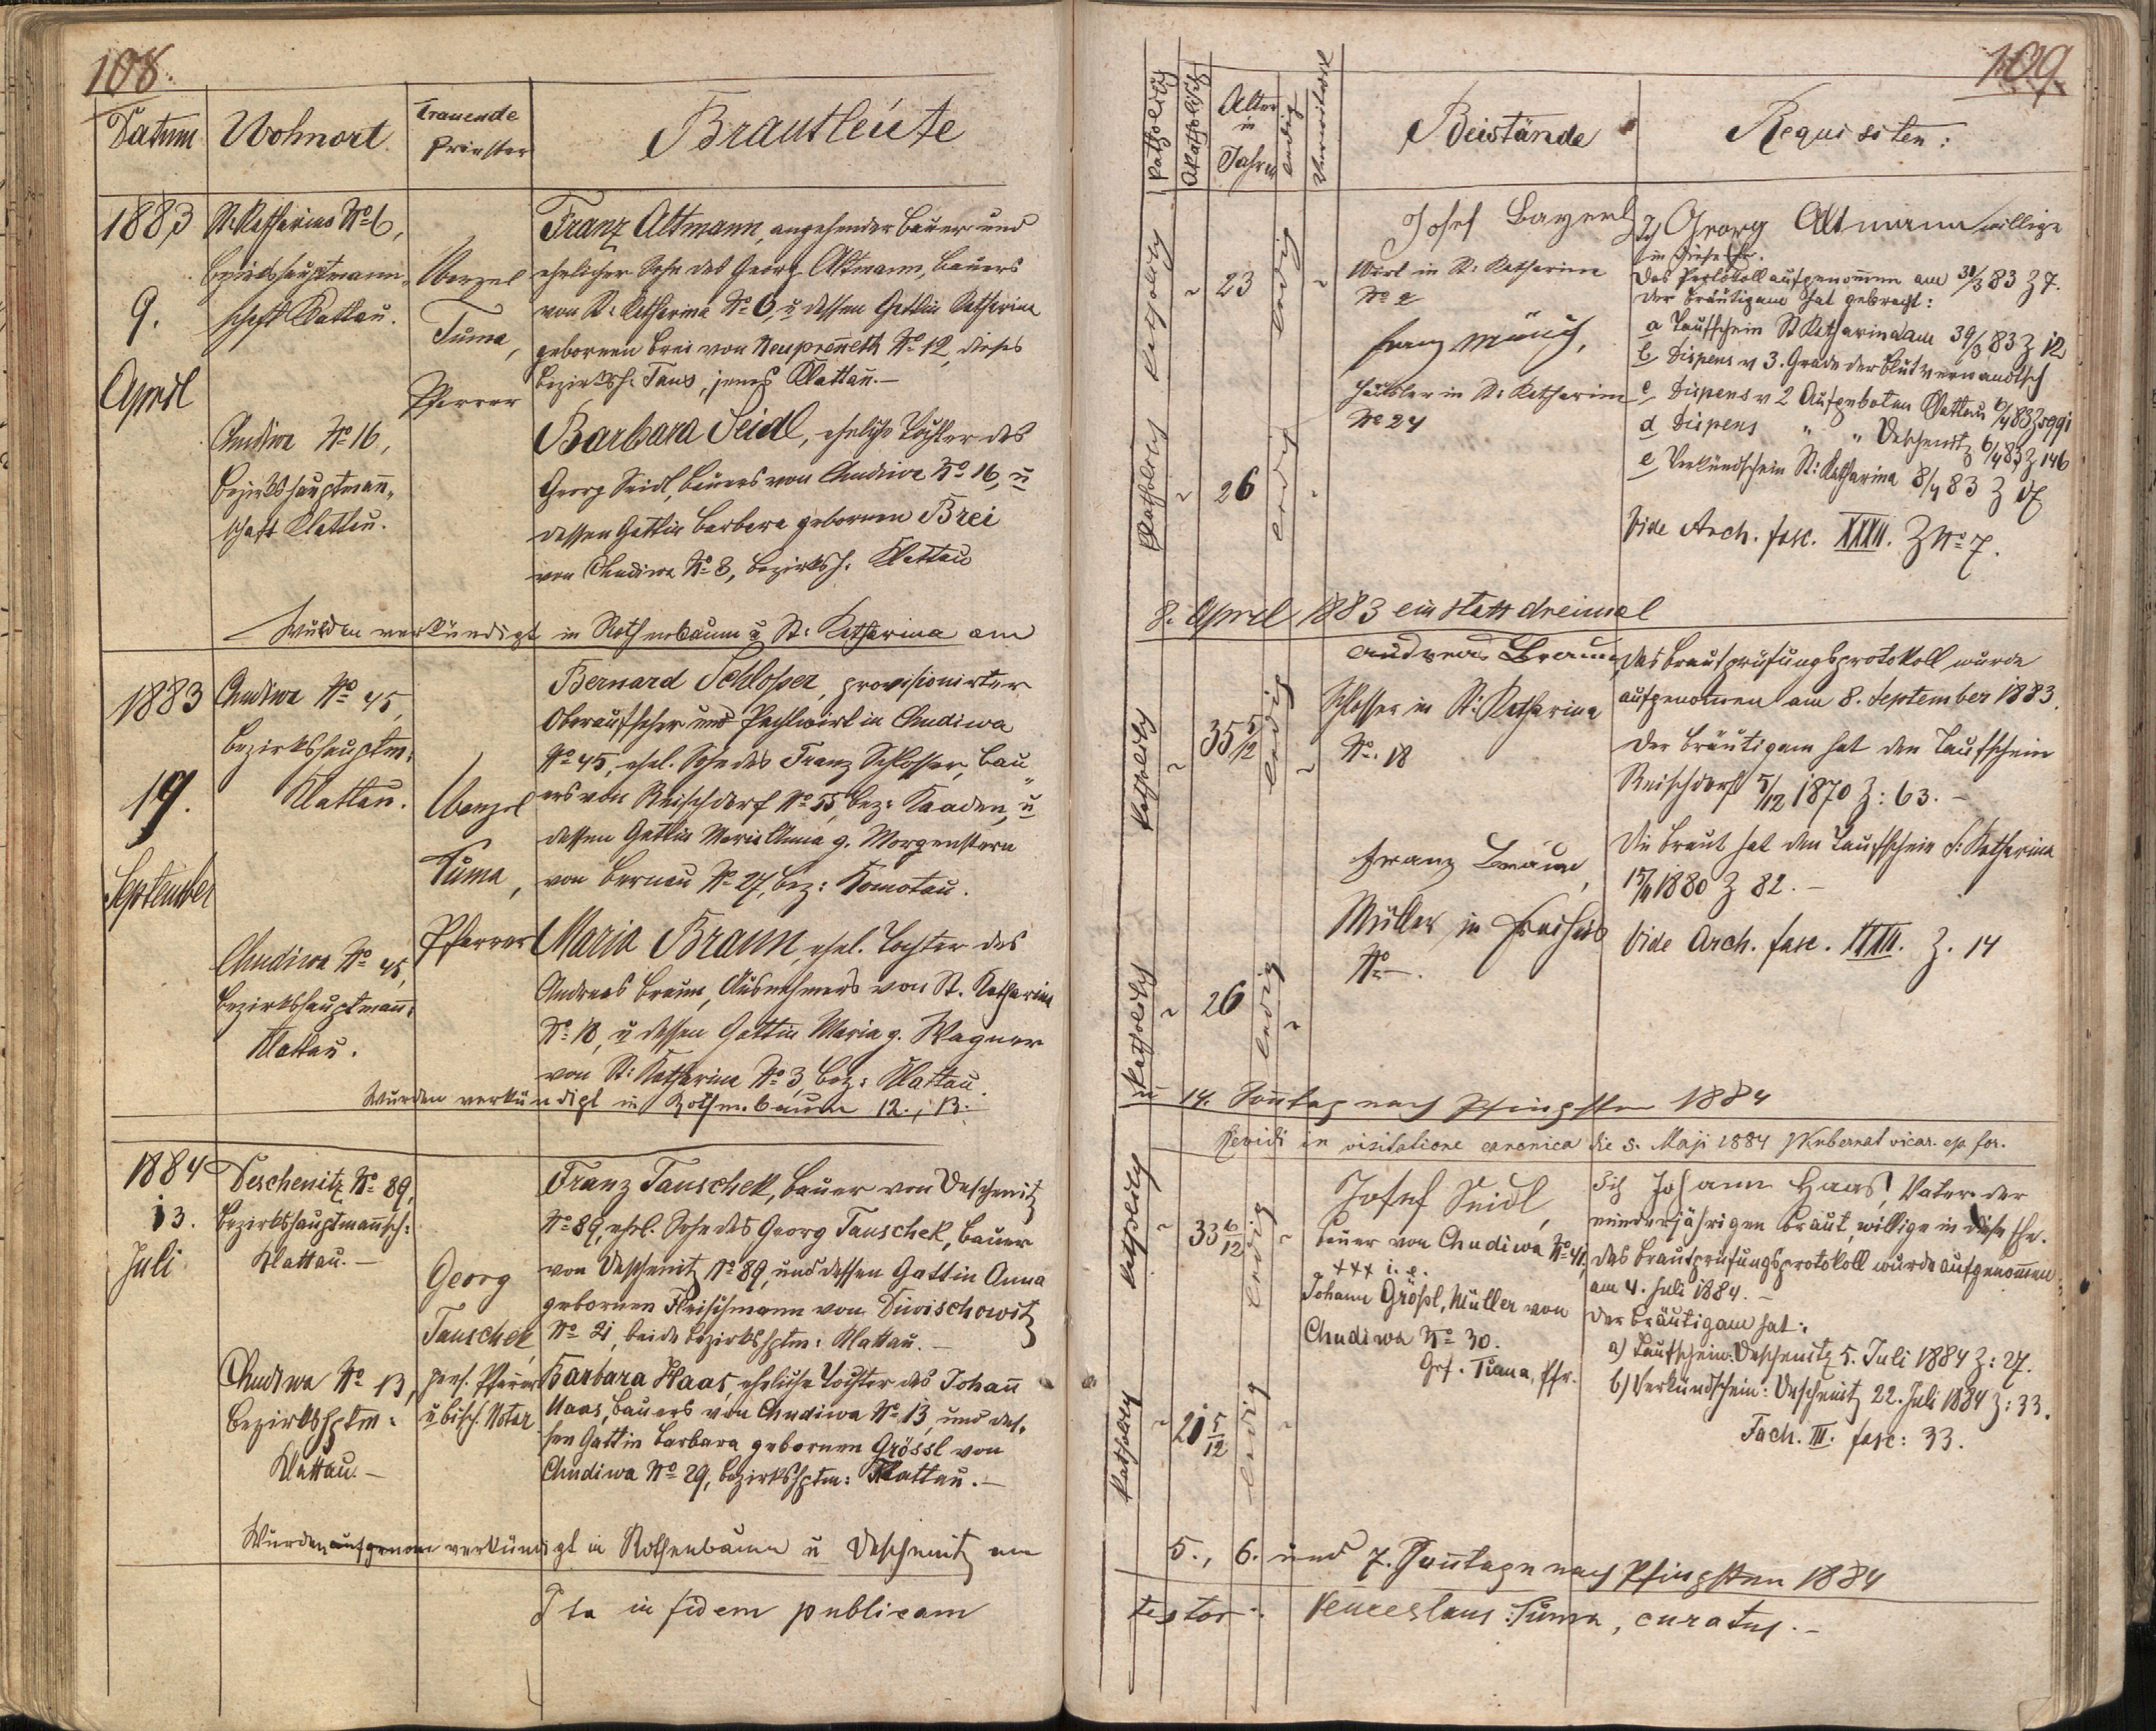 108.
Datum
Wohnort
Trauende Priester
Brautleute
1883
9.
April
St. Katharina No 6,
Bezirkshauptmann-
schaft Klattau.
Wenzel
Tuma,
Pfarrer
Franz Altmann, angehender Bauer und
ehelicher Sohn des Georg Altmann, Bauers
von St. Katharina No 6, u dessen Gattin Katharina
gebornen Brei von Neuprenneth No 12, dieses
Bezirksh. Taus, jenes Klattau.—
Chudiwa No 16,
Bezirkshauptmann-
schaft Klattau.
Barbara Seidl, eheliche Tochter des
Georg Seidl, Bauers von Chudiwa No 16, u
dessen Gattin Barbara gebornen Brei
von Chudiwa No 8, Bezirksh. Klattau
Wurden verkündigt in Rothenbaum u St: Katharina am
1883
19.
September
Chudiwa No 45,
Bezirkshauptm:
Klattau.
Wenzel
Tuma,
Pfarrer
Bernard Schlosser, provisionirter
Oberaufseher und Pachtwirt in Chudiwa
No 45, ehel. Sohn des Franz Schlosser, Bau-
ers von Reischdorf No 55, bez: Kaaden, u
dessen Gattin Maria Anna g. Morgenstern
von Bernau No 27, bez: Komotau.
Chudiwa No 45,
Bezirkshauptmann:
Klattau.
Maria Braun, ehel. Tochter des
Andreas Braun, Ausnehmers von St. Katharina
No 18, u dessen Gattin Maria g. Wagner
von St: Katharina No 3, bez: Klattau.
Wurden verkündigt in Rothenbaum 12., 13.
1884
13.
Juli
Deschenitz No 89,
Bezirkshauptmannsch:
Klattau.—
Georg
Tauschek,
pens. Pfarrer
u bisch. Notar
Franz Tauschek, Bauer von Deschenitz
No 89, ehel. Sohn des Georg Tauschek, Bauer
von Deschenitz No 89, und dessen Gattin Anna
gebornen Fleischmann von Diwischowitz
No 21, beide Bezirkshptm: Klattau.—
Chudiwa No 13,
Bezirkshptm:
Klattau.—
Barbara Haas, eheliche Tochter des Johann
Haas, Bauers von Chudiwa No 13, und des-
sen Gattin Barbara gebornen Grössl von
Chudiwa No 29, Bezirkshptm: Klattau.—
Wurden aufgenom verkündigt in Rothenbaum u Deschenitz am
Ita in fidem publicam
109.
Katholisch
Akatholisch
Alter in Jahren
ledig
Verwitwet
Beistände
Requisiten:
Katholisch
23
ledig
Josef Bayerl
Wirt in St: Katharina
No 2
Franz Münch,
Häusler in St: Katharina
No 24
Ich Georg Altmann willige
in diese Ehe.
Das Protokoll aufgenommen am 31/3 83 Z 7.
Der Bräutigam hat gebracht:
a Taufschein St Katharina am 30/3 83 Z 12
b Dispens v 3. Grade der Blutverwandtsch
c Dispens v 2 Aufgeboten Klattau 6/4 83 Z
d Dispens " " Deschenitz 6/4 83 Z 146
e Verkündschein St: Katharina 8/4 83 Z
Vide Arch. fasc. XXXII. Z No 7.
Katholisch
26
ledig
8. April 1883 ein statt dreimal
Katholisch
35 5/12
ledig
Andreas Braun,
Schlosser in St: Katharina
No. 18
Franz Braun,
Müller in
No —.
Das Brautprüfungsprotokoll wurde
aufgenommen am 8. September 1883.
Der Bräutigam hat den Taufschein
Reischdorf 5/12 1870 Z: 63.—
Die Braut hat den Taufschein S: Katharina
1880 Z 82.—
Vide Arch. fasc. XXXII. Z. 14
Katholisch
26
ledig
u 14. Sonntag nach Pfingsten 1884
Revidi in visitatione canonica die 5. Maji 1884 Kubernat vicar. ep. for.
Katholisch
33 6/12
ledig
Josef Seidl,
Bauer von Chudiwa No 41,
+++ i. e.
Johann Grössl, Müller von
Chudiwa No 30.
Gef. Tuma, Pfr.
Ich Johann Haas, Vater der
minderjährigen Braut, willige in diese Ehe.
Das Brautprüfungsprotokoll wurde aufgenommen
am 4. Juli 1884.—
Der Bräutigam hat:
a) Taufschein: Deschenitz 5. Juli 1884 Z: 27.
b) Verkündschein: Deschenitz 22. Juli 1884 Z: 33.
Fach. III. fasc: 33.
Katholisch
21 5/12
ledig
5., 6. und 7. Sonntage nach Pfingsten 1884
testor: Venceslaus Tuma, curatus.—